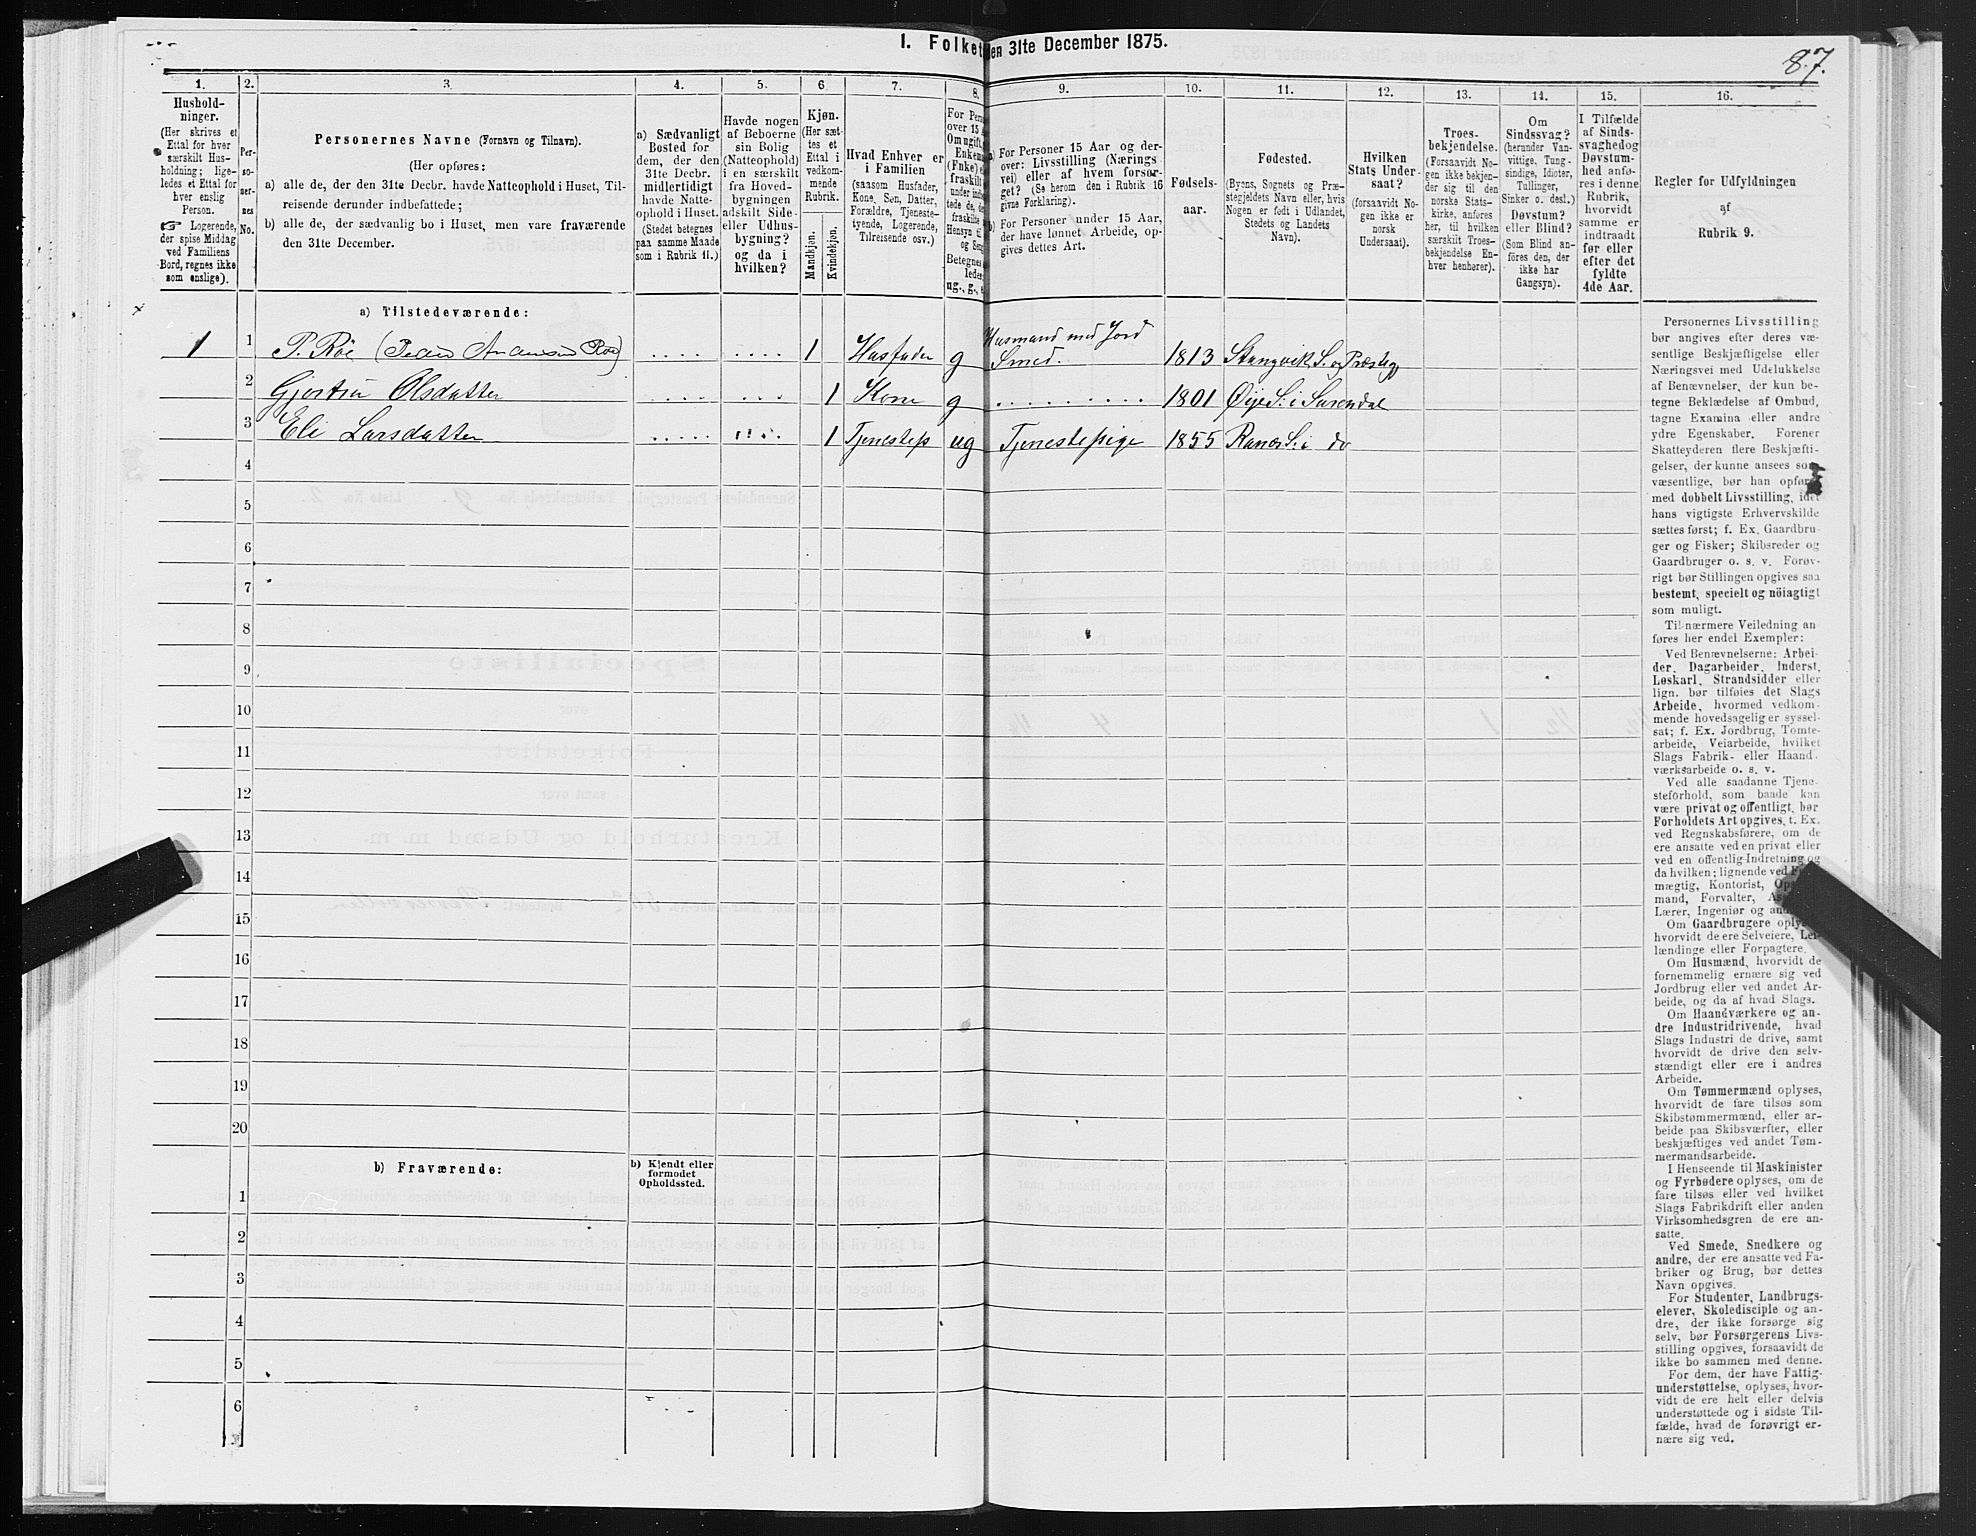 87.
I. Folket
den 31te December 1875.
1.
2.
3.
4.
5.
6
7.
8.
9.
10.
11.
12.
13.
14.
15.
16.
Hushold-
ninger.
(Her skrives et
Ettal for hver
særskilt Hus-
holdning; lige-
ledes et Ettal for
hver enslig
Person.
☞ Logerende,
der spise Middag
ved Familiens
Bord, regnes ikke
som enslige).
Per-
so-
ner-
nes
No.
Personernes Navne (Fornavn og Tilnavn).
(Her opføres:
a) alle de, der den 31te Decbr. havde Natteophold i Huset, Til-
reisende derunder indbefattede;
b) alle de, der sædvanlig bo i Huset, men vare fraværende
den 31te December.
a) Sædvanligt
Bosted for
dem, der den
31te Decbr.
midlertidigt
havde Natte-
ophold i Huset.
(Stedet betegnes
paa samme Maade
som i Rubrik 11.)
Havde nogen
af Beboerne
sin Bolig
(Natteophold)
i en særskilt
fra Hoved-
bygningen
adskilt Side-
eller Udhus-
bygning?
og da i
hvilken?
Kjøn.
(Her sæt-
tes et
Ettal i
vedkom-
mende
Rubrik.
Mandkjøn.
Kvindekjøn.
Hvad Enhver er
i Familien
(saasom Husfader,
Kone, Søn, Datter,
Forældre, Tjeneste-
tyende, Logerende,
Tilreisende osv.)
For Pers
over 15 A
Omugift,
Enkema
(Enke) e
fraskilt
under ind
tede de, de
fraskilte
Hensyn ti
og Sen
Betegnes
lede
ug., g., e
a) For Personer 15 Aar og der-
over: Livsstilling (Nærings
vei) eller af hvem forsør-
get? (Se herom den i Rubrik 16
givne Forklaring).
b) For Personer under 15 Aar,
der have lønnet Arbeide, op-
gives dettes Art.
Fødsels-
aar.
Fødested.
(Byens, Sognets og Præ-
stegjeldets Navn eller, hvis
Nogen er født i Udlandet,
Stedets og Landets
Navn).
Hvilken
Stats Under-
saat?
(forsaavidt No-
gen ikke er
norsk
Undersaat).
Troes-
bekjendelse.
(Forsaavidt No-
gen ikke bekjen-
der sig til den
norske Stats-
kirke, anføres
her, til hvilken
særskilt Troes-
bekjendelse En-
hver henhører).
Om
Sindssvag?
(herunder Van-
vittige, Tung-
sindige, Idioter,
Tullinger,
Sinker o. desl.)
Døvstum?
eller Blind?
(Som Blind an-
føres den, der
ikke har
Gangsyn).
I Tilfælde
af Sinds-
svaghed og
Døvstum-
hed anfø-
res i denne
Rubrik,
hvorvidt
samme er
indtraadt
før eller
efter det
fyldte
4de Aar.
Regler for Udfyldningen
af
Rubrik 9.
a) Tilstedeværende:
1 1 P. Röe (Peder Roe) 1 Husfader g Husmand med Jord
Smed. 1813 Stangvik S. og Præsteg
2 Gjertru Olsdatter 1 Kone g 1801 Øije S: i Surendal
3 Eli Larsdatter 1 Tjenestep ug Tjenestepige 1855 Ranes S: i do
4
5
6
7
8
9
10
11
12
13
14
15
16
17
18
19
20
b) Fraværende:
b) Kjendt eller
formodet
Opholdssted.
1
2
3
4
5
6
Personernes Livsstilling
bør angives efter deres væ-
sentlige Beskjæftigelse eller
Næringsvei med Udelukkelse
af Benævnelser, der kun be-
tegne Beklædelse af Ombud,
tagne Examina eller andre
ydre Egenskaber. Forener
Skatteyderen flere Beskjæfti-
gelser, der kunne ansees som
væsentlige, bør han opføres
med dobbelt Livsstilling, idet
hans vigtigste Erhvervskilde
sættes først; f. Ex. Gaardbru-
ger og Fisker; Skibsreder og
Gaardbruger o. s. v. Forøv-
rigt bør Stillingen opgives saa
bestemt, specielt og nöiagtigt
som muligt.
Til nærmere Veiledning an
føres her endel Exempler:
Ved Benævnelserne: Arbei-
der, Dagarbeider, Inderst,
Løskarl, Strandsidder eller
lign. bør tilføies det Slags
Arbeide, hvormed vedkom-
mende hovedsagelig er syssel-
sat; f. Ex. Jordbrug, Tomte-
arbeide, Veiarbeide, hvilket
Slags Fabrik- eller Haand
værksarbeide o. s. v.
Ved alle saadanne Tjene-
steforhold, som baade kan
være privat og offentligt, bør
Forholdets Art opgives, t. Ex.
ved Regnskabsførere, om de
ere ansatte ved en privat eller
ved en offentlig Indretning og
da hvilken; lignende ved
mægtig, Kontorist,
mand, Forvalter,
Lærer, Ingeniør og
Om Gaardbrugere oplyses
hvorvidt de ere Selveiere, Lei-
lændinge eller Forpagtere.
Om Husmænd, hvorvidt de
fornemmelig ernære sig ved
Jordbrug eller ved andet Ar-
beide, og da af hvad Slags.
Om Haandværkere og an-
dre Industridrivende, hvad
Slags Industri de drive, samt
hvorvidt de drive den selv-
stændigt eller ere i andres
Arbeide.
Om Tømmermænd oplyses,
hvorvidt de fare tilsøs som
Skibstømmermænd, eller ar-
beide paa Skibsværfter, eller
beskjæftiges ved andet Tøm-
mermandsarbeide.
I Henseende til Maskinister
og Fyrbødere oplyses, om de
fare tilsøs eller ved hvilket
Slags Fabrikdrift eller anden
Virksomhedsgren de ere an-
satte.
Ved Smede, Snedkere og
andre, der ere ansatte ved Fa-
briker og Brug, bør dettes
Navn opgives.
For Studenter, Landbrugs-
elever, Skoledisciple og an-
dre, der ikke forsørge sig
selv, bør Forsørgerens Livs-
stilling opgives, forsaavidt de
ikke bo sammen med denne.
For dem, der have Fattig-
understøttelse, oplyses, hvor-
vidt de ere helt eller delvis
understøttede og i sidste Til-
fælde, hvad de forøvrigt er-
nære sig ved.